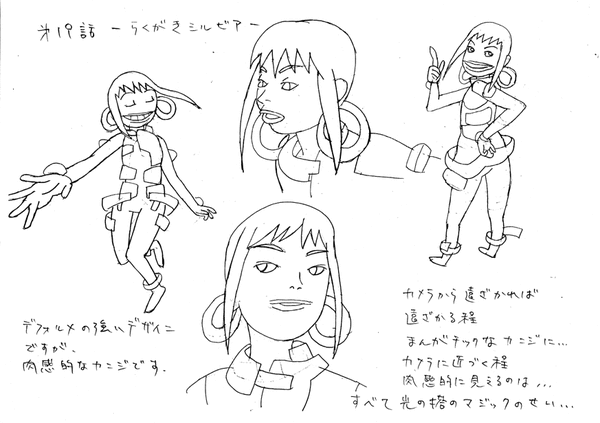 第19話 －らくがきシルビアー－
デフォルメの強いデザイン
ですが、
肉感的なカンジです.
カメラから遠ざかれば
遠ざかる程
まんがチックなカンジに...
カメラに近づく程
肉感的に見えるのは...
すべて光の塔のマジックのせい...